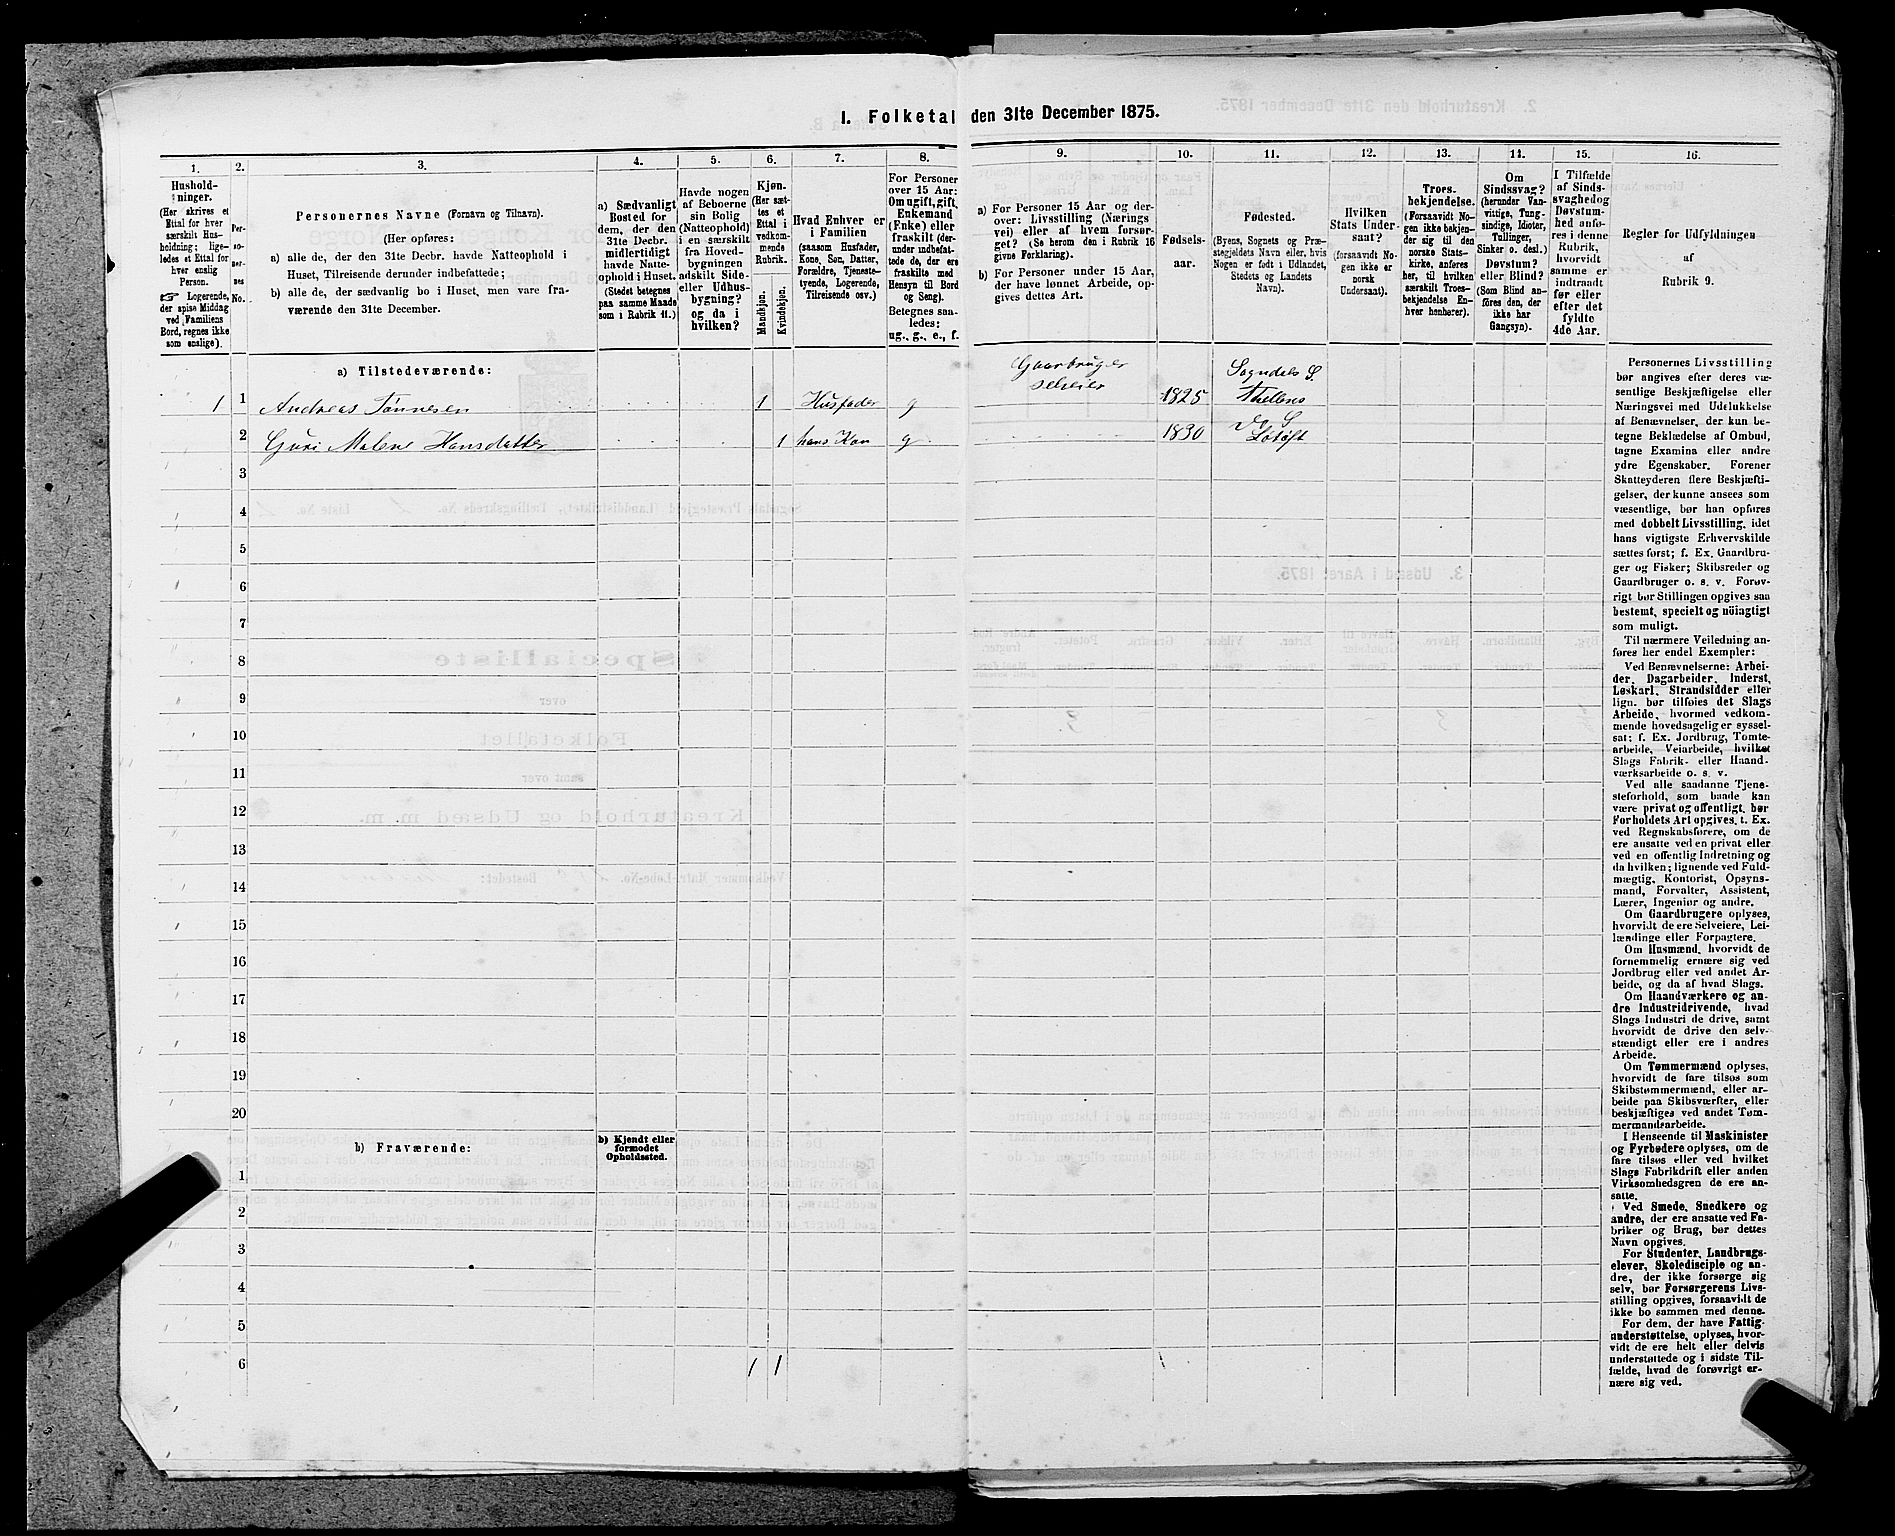 I. Folketal den 31te December 1875.
1.
2.
3.
4.
5.
6.
7.
8.
9.
10.
11.
12.
13.
14.
15.
16.
Hushold-
ninger.
(Her skrives et
Ettal for hver
særskilt Hus-
holdning; lige-
ledes et Ettal for
hver enslig
Person.
☞ Logerende,
der spise Middag
ved Familiens
Bord, regnes ikke
som enslige).
Per-
so-
ner-
nes
No.
Personernes Navne (Fornavn og Tilnavn).
(Her opføres:
a) alle de, der den 31te Decbr. havde Natteophold i
Huset, Tilreisende derunder indbefattede;
b) alle de, der sædvanlig bo i Huset, men vare fra-
værende den 31te December.
a) Sædvanligt
Bosted for
dem, der den
31te Decbr.
midlertidigt
havde Natte-
ophold i Huset.
(Stedet betegnes
paa samme Maade
som i Rubrik 11.)
Havde nogen
af Beboerne
sin Bolig
(Natteophold)
i en særskilt
fra Hoved-
bygningen
adskilt Side-
eller Udhus-
bygning?
og da i
hvilken?
Kjøn.
(Her sæt-
tes et
Ettal i
vedkom-
mende
Rubrik.
Mandkjøn.
Kvindekjøn.
Hvad Enhver er
i Familien
(saasom Husfader,
Kone, Søn, Datter,
Forældre, Tjeneste-
tyende, Logerende,
Tilreisende osv.)
For Personer
over 15 Aar:
Om ugift, gift,
Enkemand
(Enke) eller
fraskilt (der-
under indbefat-
tede de, der ere
fraskilte med
Hensyn til Bord
og Seng).
Betegnes saa-
ledes:
ug., g., e., f.
a) For Personer 15 Aar og der-
over: Livsstilling (Nærings
vei) eller af hvem forsør-
get? (Se herom den i Rubrik 16
givne Forklaring).
b) For Personer under 15 Aar,
der have lønnet Arbeide, op-
gives dettes Art.
Fødsels-
aar.
Fødested.
(Byens, Sognets og Præ-
stegjeldets Navn eller, hvis
Nogen er født i Udlandet,
Stedets og Landets
Navn).
Hvilken
Stats Under-
saat?
(forsaavidt No-
gen ikke er
norsk
Undersaat).
Troes-
bekjendelse.
(Forsaavidt No-
gen ikke bekjen-
der sig til den
norske Stats-
kirke, anføres
her, til hvilken
særskilt Troes-
bekjendelse En-
hver henhører).
Om
Sindssvag?
(herunder Van-
vittige, Tung-
sindige, Idioter,
Tullinger,
Sinker o. desl.)
Døvstum?
eller Blind?
(Som Blind an-
føres den, der
ikke har
Gangsyn).
I Tilfælde
af Sinds-
svaghed og
Døvstum-
hed anfø-
res i denne
Rubrik,
hvorvidt
samme er
indtraadt
før eller
efter det
fyldte
4de Aar.
Regler for Udfyldningen
af
Rubrik 9.
a) Tilstedeværende:
1 1 Andreas Tønnesen 1 Husfader g Gaarbruger selveier 1825 Sogndals S.
2 Guri Malene Hansdatter 1 hans Kon g 1830
3
4
5
6
7
8
9
10
11
12
13
14
15
16
17
18
19
20
b) Fraværende:
b) Kjendt eller
formodet
Opholdssted.
1
2
3
4
5
6
1 1
Personernes Livsstilling
bør angives efter deres væ-
sentlige Beskjæftigelse eller
Næringsvei med Udelukkelse
af Benævnelser, der kun be-
tegne Beklædelse af Ombud,
tagne Examina eller andre
ydre Egenskaber. Forener
Skatteyderen flere Beskjæfti-
gelser, der kunne ansees som
væsentlige, bør han opføres
med dobbelt Livsstilling, idet
hans vigtigste Erhvervskilde
sættes først; f. Ex. Gaardbru-
ger og Fisker; Skibsreder og
Gaardbruger o. s. v. Forøv-
rigt bør Stillingen opgives saa
bestemt, specielt og nöiagtigt
som muligt.
Til nærmere Veiledning an-
føres her endel Exempler:
Ved Benævnelserne: Arbei-
der, Dagarbeider, Inderst,
Løskarl, Strandsidder eller
lign. bør tilføies det Slags
Arbeide, hvormed vedkom-
mende hovedsagelig er syssel-
sat; f. Ex. Jordbrug, Tomte-
arbeide, Veiarbeide, hvilket
Slags Fabrik- eller Haand-
værksarbeide o. s. v.
Ved alle saadanne Tjene-
steforhold, som baade kan
være privat og offentligt, bør
Forholdets Art opgives, t. Ex.
ved Regnskabsførere, om de
ere ansatte ved en privat eller
ved en offentlig Indretning og
da hvilken; lignende ved Fuld-
mægtig, Kontorist, Opsyns-
mand, Forvalter, Assistent,
Lærer, Ingeniør og andre.
Om Gaardbrugere oplyses,
hvorvidt de ere Selveiere, Lei-
lændinge eller Forpagtere.
Om Husmænd, hvorvidt de
fornemmelig ernære sig ved
Jordbrug eller ved andet Ar-
beide, og da af hvad Slags.
Om Haandværkere og an-
dre Industridrivende, hvad
Slags Industri de drive, samt
hvorvidt de drive den selv-
stændigt eller ere i andres
Arbeide.
Om Tømmermænd oplyses,
hvorvidt de fare tilsøs som
Skibstømmermænd, eller ar-
beide paa Skibsværfter, eller
beskjæftiges ved andet Tøm-
mermandsarbeide.
I Henseende til Maskinister
og Fyrbødere oplyses, om de
fare tilsøs eller ved hvilket
Slags Fabrikdrift eller anden
Virksomhedsgren de ere an-
satte.
Ved Smede, Snedkere og
andre, der ere ansatte ved Fa-
briker og Brug, bør dettes
Navn opgives.
For Studenter, Landbrugs-
elever, Skoledisciple og an-
dre, der ikke forsørge sig
selv, bør Forsørgerens Livs-
stilling opgives, forsaavidt de
ikke bo sammen med denne.
For dem, der have Fattig-
understøttelse, oplyses, hvor-
vidt de ere helt eller delvis
understøttede og i sidste Til-
fælde, hvad de forøvrigt er-
nære sig ved.